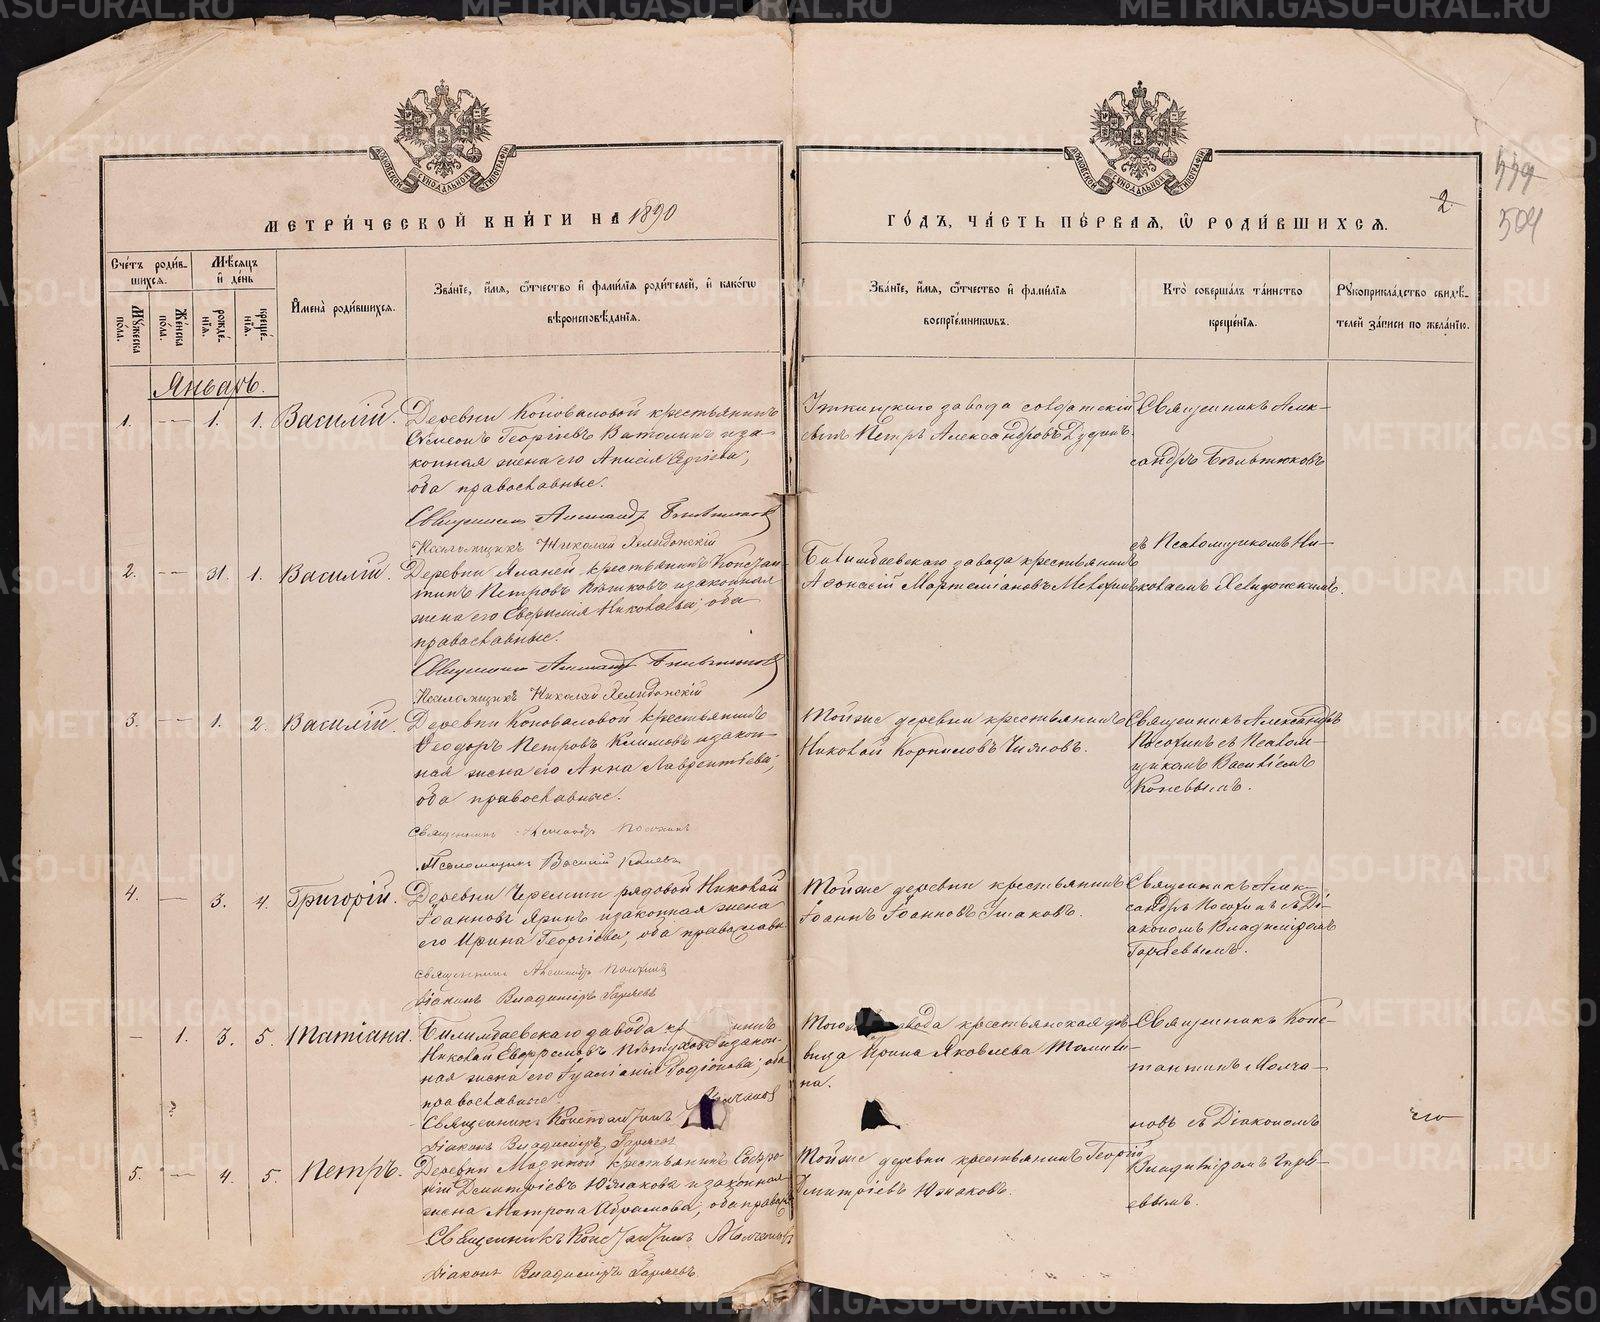 МЕТРИ́ЧЕСКОЙ КНИ́ГИ НА 1890
ГО́ДЪ, ЧА́СТЬ ПЕ́РВАЯ, Ѽ РОДИ́ВШИХСѦ.
2
504
Сче́тъ роди́в-
шихсѧ.
Мꙋ́жеска
по́ла.
Же́нска
по́ла.
Мѣ́сѧцъ
и҆ де́нь
рожде́-
нїѧ.
креще́-
нїѧ.
И҆мена̀ роди́вшихсѧ.
Зва́нїе, и҆́мѧ, ѻ҆́тчество и҆ фами́лїѧ роди́телей, и҆ како́гѡ
вѣроисповѣ́данїѧ.
Зва́нїе, и҆́мѧ, ѻ҆́тчество и҆ фами́лїѧ
воспрїе́мникѡвъ.
Кто̀ соверша́лъ та́инство
креще́нїѧ.
Рꙋкоприкла́дство свидѣ́-
телей за́писи по жела́нїю.
Январь.
1. — 1. 1. Василій.
Деревни Коноваловой крестьянинъ
Симеонъ Георгіевъ Ватолинъ и за-
конная жена его Анисія Сергіева,
оба православные.
Священникъ Александръ Бѣльтюковъ
Псаломщикъ Николай Хелидонскій
Уткинскаго завода солдатскій
сынъ Петръ Александровъ Дудинъ.
Священникъ Алек-
сандръ Бѣльтюковъ
съ Псаломщикомъ Ни-
колаемъ Хелидонскимъ.
2. — 31. 1. Василій.
Деревни крестьянинъ Констан-
тинъ Петровъ и законная
жена его Евфимія Николаева, оба
православные.
Священникъ Александръ Бѣльтюковъ
Псаломщикъ Николай Хелидонскій
Билимбаевскаго завода крестьянинъ
Афонасій Мартеміановъ
3. — 1. 2. Василій.
Деревни Коноваловой крестьянинъ
Ѳеодоръ Петровъ Климовъ и закон-
ная жена его Анна Лаврентіева,
оба православные.
Священникъ Александръ Посохинъ
Псаломщикъ Василій Коневъ
Тойже деревни крестьянинъ
Николай Корниловъ Чижовъ.
Священникъ Александръ
Посохинъ съ Псалом-
щикомъ Василіемъ
Коневымъ.
4. — 3. 4. Григорій.
Деревни Черемши рядовой Николай
Іоанновъ Яринъ и законная жена
его Ирина Георгіева, оба православн.
Священникъ Александръ Посохинъ
Діаконъ Владиміръ Гаряевъ
Тойже деревни крестьянинъ
Іоаннъ Іоанновъ Ушаковъ.
Священникъ Алек-
сандръ Посохинъ съ Ді-
акономъ Владиміромъ
Гаряевымъ.
— 1. 3. 5. Татіана.
Билимбаевскаго завода кр нинъ
Николай Евфремовъ Пѣтуховъ и закон-
ная жена его Іуліанія Родіонова, оба
православные.
Священникъ Константинъ Молчановъ
Діаконъ Владиміръ Гаряевъ
Того завода крестьянская дѣ-
вица Ирина Яковлева Томили-
на.
Священникъ Конс-
тантинъ Молча-
новъ съ Діакономъ
Владиміромъ Гаря-
евымъ.
5. — 4. 5. Петръ.
Деревни крестьянинъ Софро-
ній Димитріевъ Южаковъ и законная
жена Матрона Абрамова, оба правосл.
Священникъ Константинъ Молчановъ
Діаконъ Владиміръ Гаряевъ
Тойже деревни крестьянинъ Георгій
Димитріевъ Южаковъ.